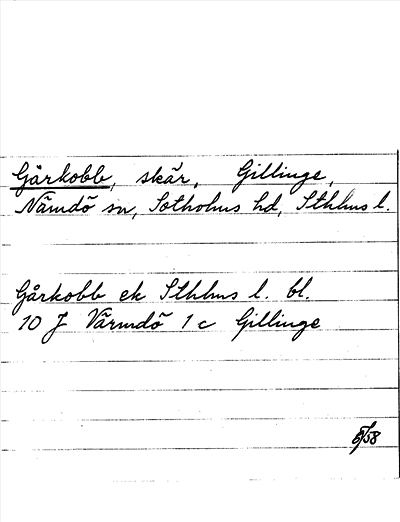 Gårkobb, skär, Gillinge,
Nämdö sn, Sotholms hd, Sthlms l.
Gårkobb ek Sthlms l. bl.
10 J Värmdö 1 c Gillinge
8/58